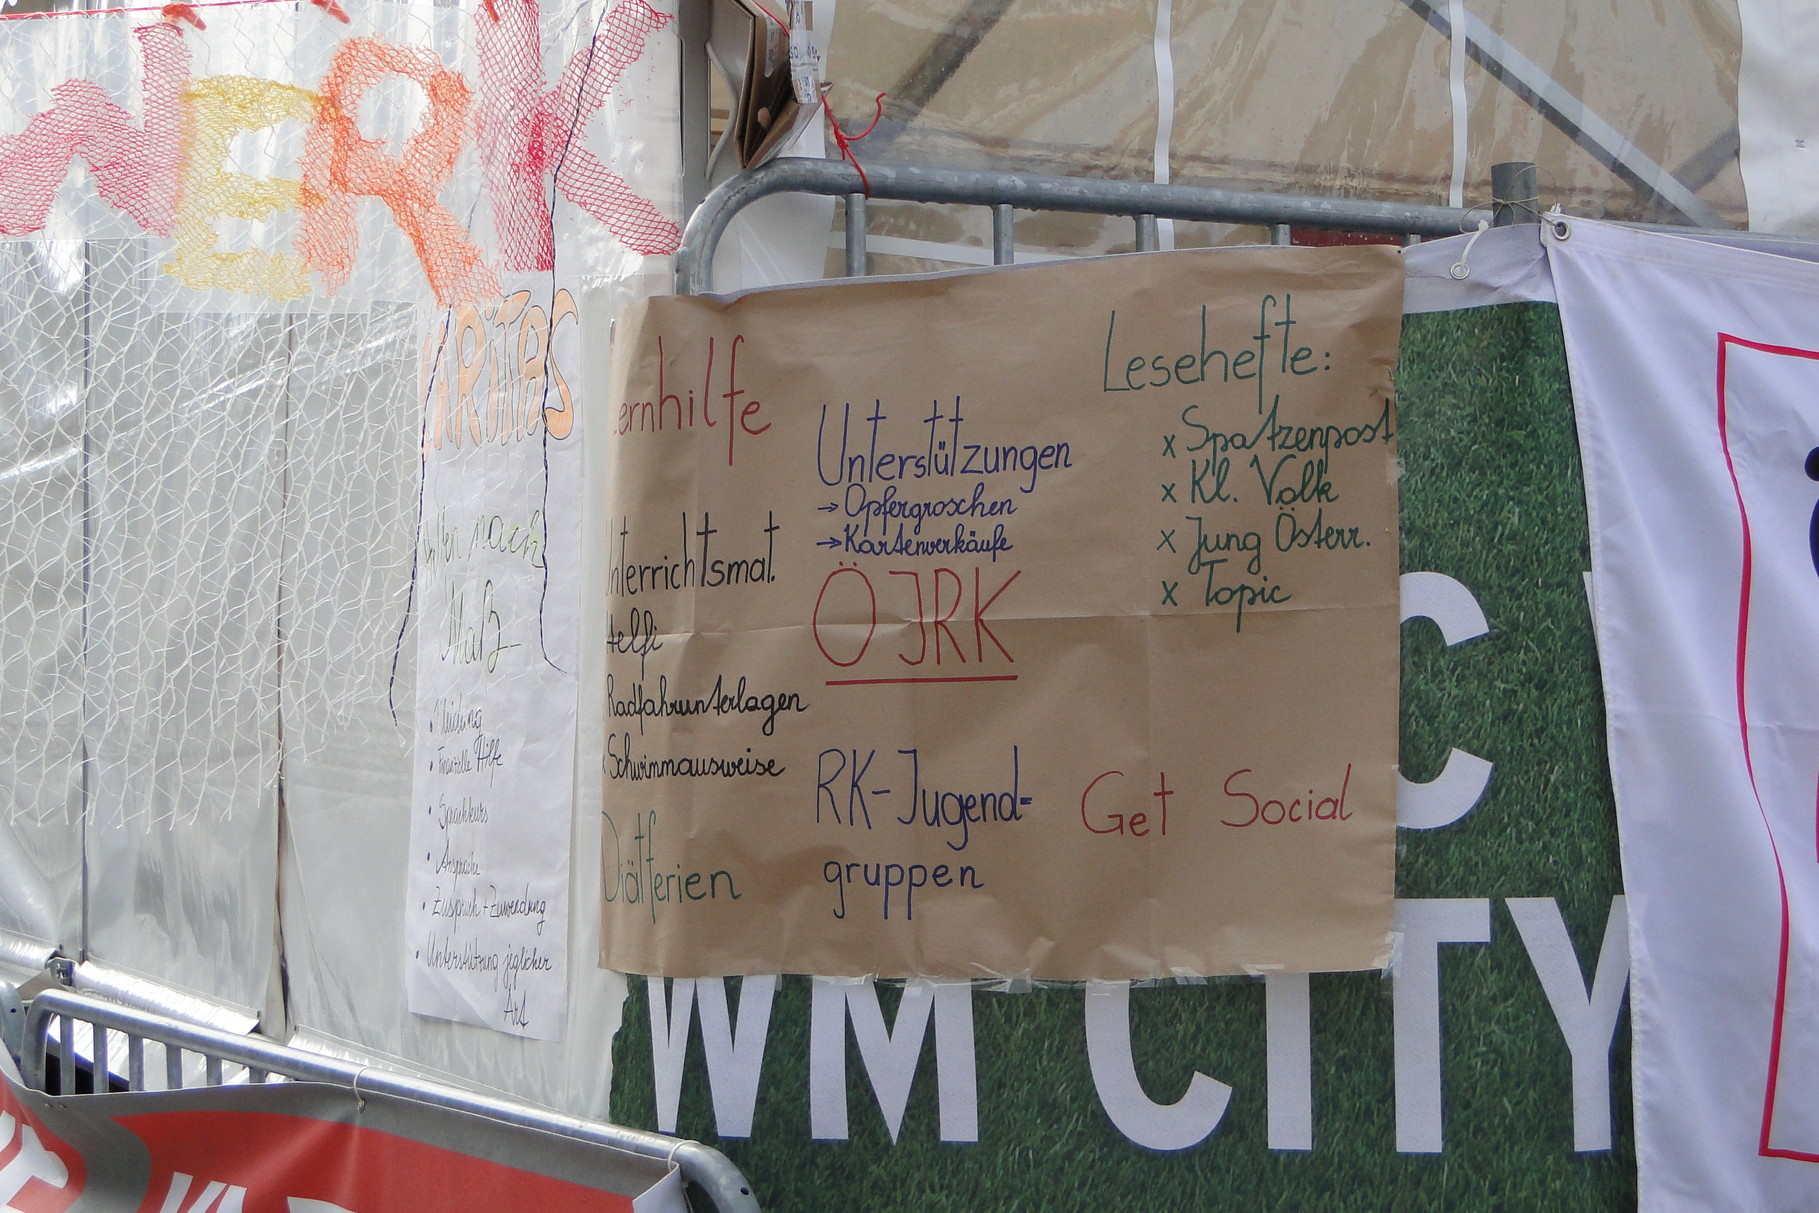 WERK
CARITAS
Helfen nach
Maß
• Kleidung
• Finanzielle Hilfe
• Sprachkurs
• Ansprache
• Zuspruch + Zuwendung
• Unterstützung jeglicher
Art
ernhilfe
nterrichtsmat.
Helfi
Radfahrunterlagen
x Schwimmausweise
Diätferien
Unterstützungen
→ Opfergroschen
→ Kartenverkäufe
ÖJRK
RK-Jugend-
gruppen
Lesehefte:
x Spatzenpost
x Kl. Volk
x Jung Österr.
x Topic
Get Social
C
WM CITY